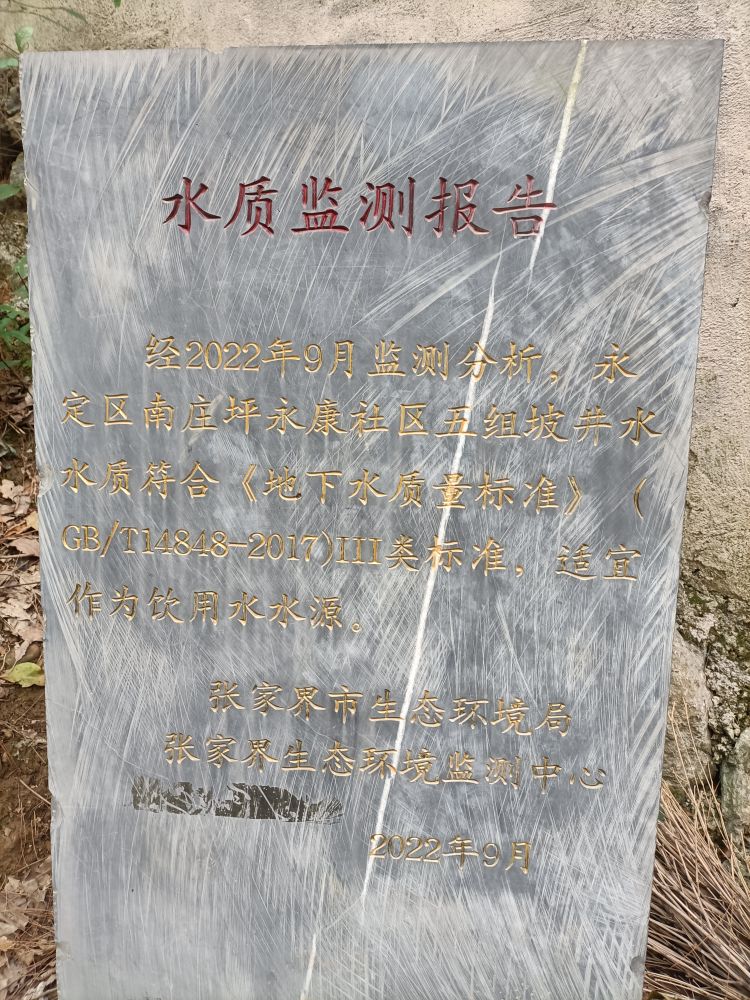 水质监测报告
经2022年9月监测分析，永
定区南庄坪永康社区五组坡井水
水质符合《地下水质量标准》（
GB/T14848-2017)III类标准，适宜
作为饮用水水源。
张家界市生态环境局
张家界生态环境监测中心
2022年9月